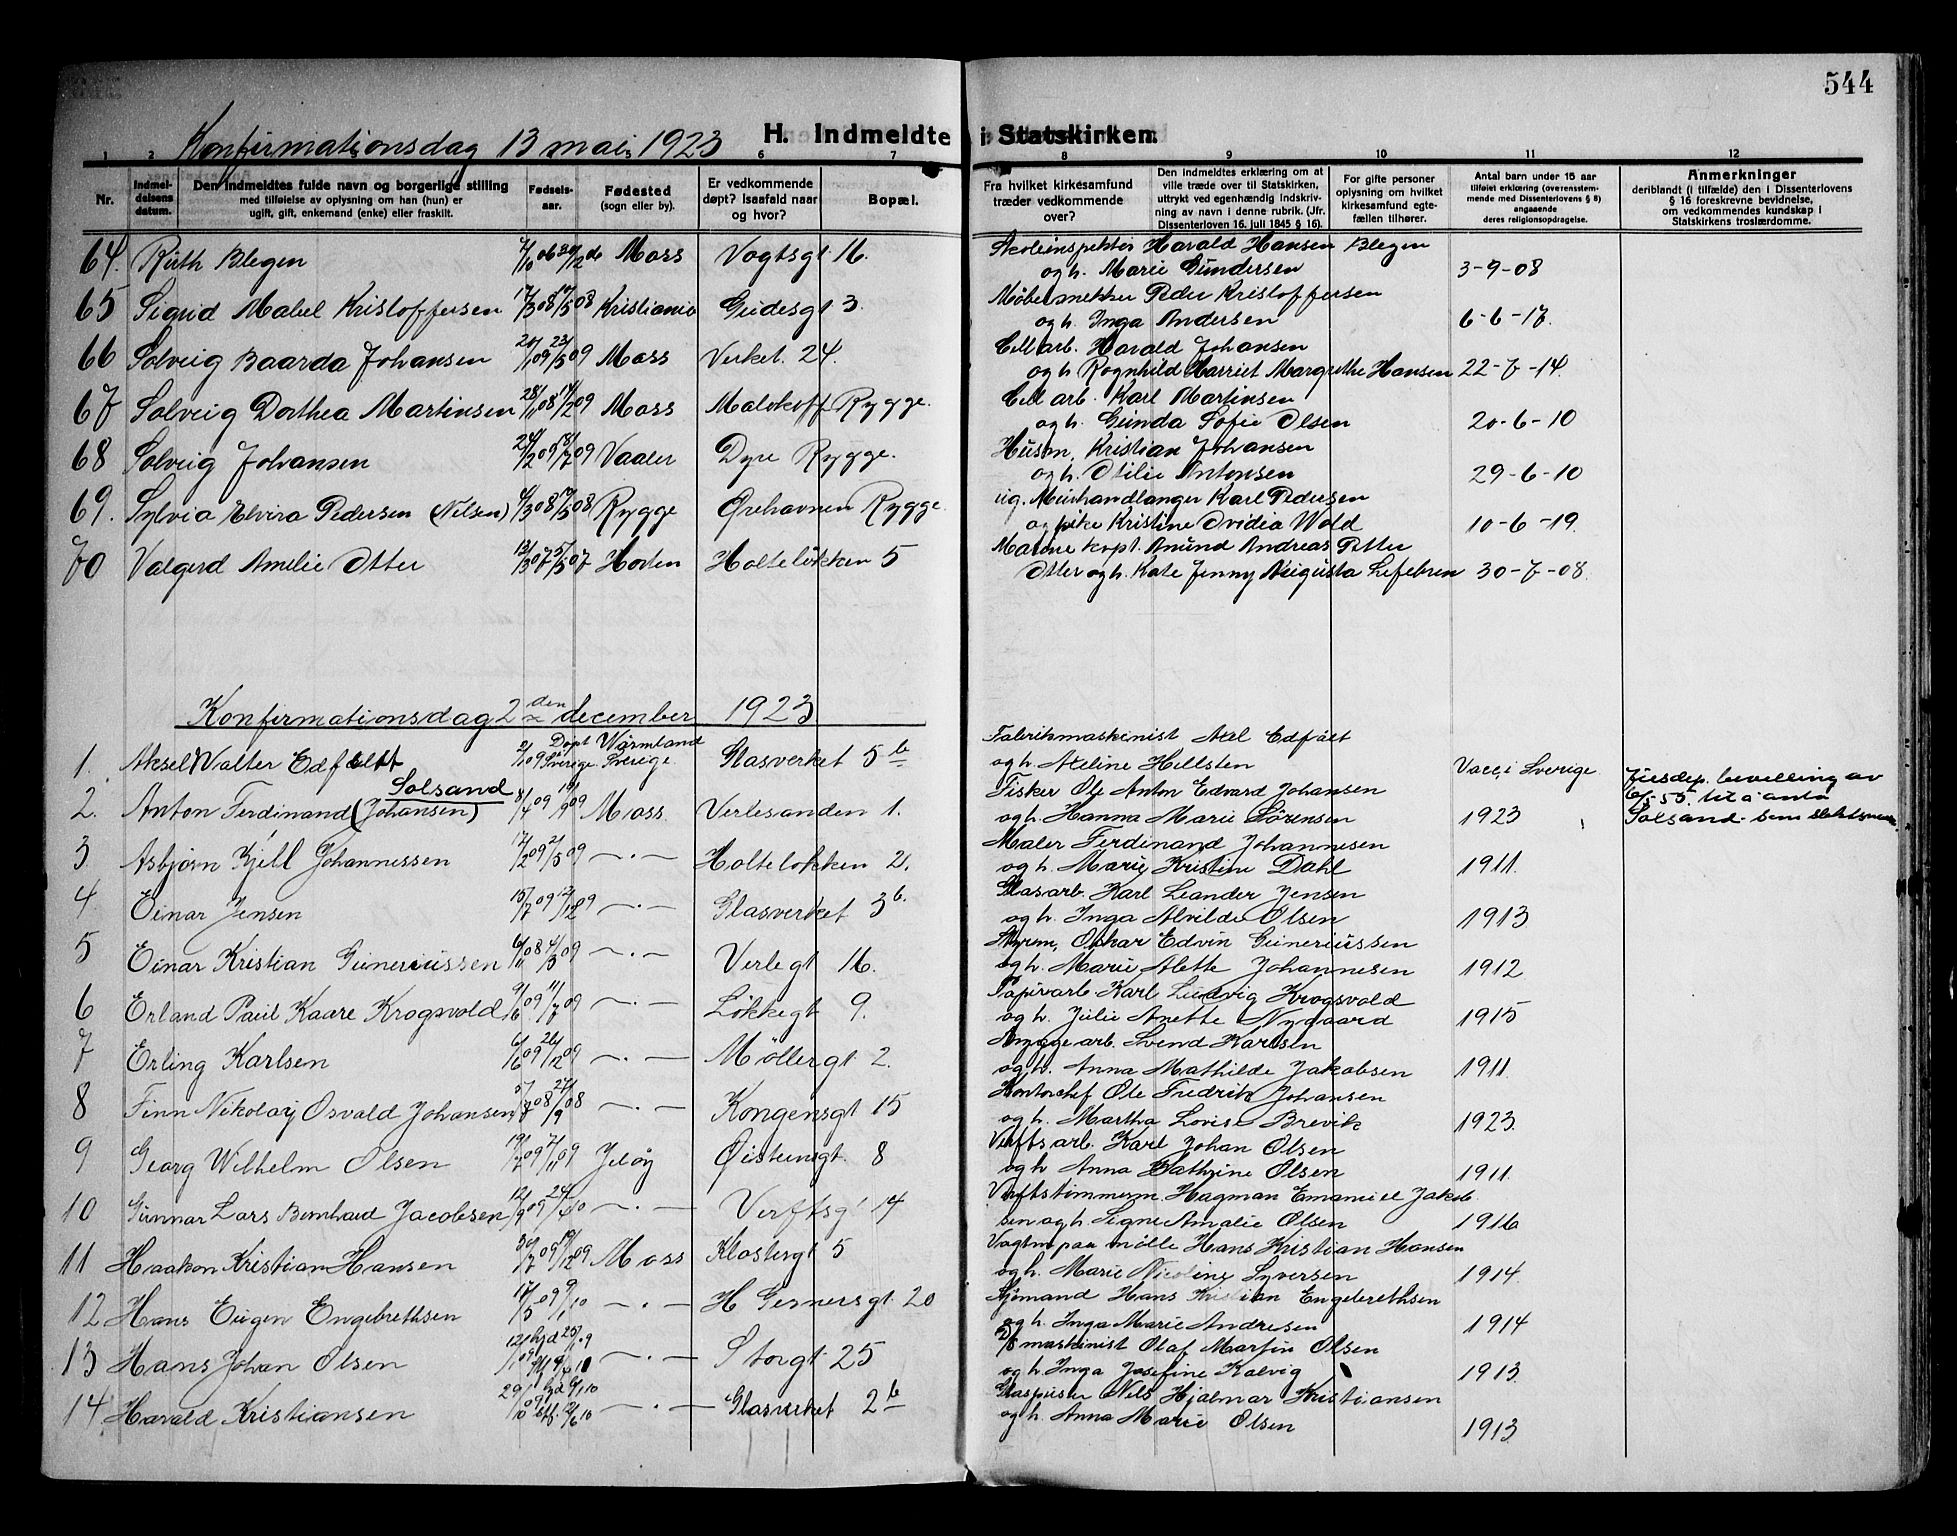 544
Konfirmationsdag 13 mai 1923 H. Indmeldte i Statskirken.
1 2 6 7 8 9 10 11 12
Nr. Indmeldelsens datum. Den indmeldtes fulde navn og borgerlige stilling med tilføielse av oplysning om han (hun) er ugift, gift, enkemand (enke) eller fraskilt. Fødselsaar. Fødested (sogn eller by). Er vedkommende døpt? Isaafald naar og hvor? Bopæl. Fra hvilket kirkesamfund træder vedkommende over? Den indmeldtes erklæring om at ville træde over til Statskirken, uttrykt ved egenhændig indskrivning av navn i denne rubrik. (Jfr. Dissenterloven 16. juli 1845 § 16). For gifte personer oplysning om hvilket kirkesamfund egtefællen tilhører. Antal barn under 15 aar tilføiet erklæring (overensstemmende med Dissenterlovens § 8) angaaende deres religionsopdragelse. Anmerkninger deriblandt (i tilfælde) den i Dissenterlovens § 16 foreskrevne bevidnelse, om vedkommendes kundskap i Statskirkens troslærdomme.
64. Ruth Blegen Moss Vogtsgt 16. Skoleinspektør Harald Hansen Blegen
og h. Marie Gundersen 3-9-08
65 Sigrid Mabel Kristoffersen 17/3 08 17/5 08 Kristiania Gudesgt 3. Møbelsnekker Peder Kristoffersen
og h. Inga Andersen 6-6-17.
66 Solveig Baarda Johansen 20/1 09 23/5 09 Moss Verket 24. Cell arb. Harald Johansen
og h Ragnhild Harriet Margrethe Hansen 22-7-14.
67 Solveig Dorthea Martinsen 28/11 08 14/2 09 Moss Malakoff Rygge. Cell arb. Karl Martinsen
og h. Gunda Sofie Olsen 20-6-10
68 Solveig Johansen 24/2 09 18/7 09 Vaaler Dyre Rygge. Husm. Kristian Johansen
og h. Otilie Antonsen 29-6-10
69. Sylvia Elvira Pedersen (Nilsen) Rygge Ørehavnen Rygge ug. Murhandlanger Karl Pedersen
og pike Kristine Ovidia Wold 10-6-19.
70 Valgerd Amelie Otter 13/3 07 5/5 07 Horten Holteløkken 5 Marine kapt. Amund Andreas Petter
Otter og h. Kate Jenny Augusta Lefebren 30-7-08.
Konfirmationsdag 2 den december 1923
1. Aksel Walter Edfeldt 2/10 09 Døpt Sverige Wärmland Sverige Glasverket 5 b Fabrikmaskinist Axel Edfält
og h. Axeline Hellsten Vacc. i Sverige
2. Anton Ferdinand (Johansen) Solsand 8/4 09 Moss Verlesanden 1. Fisker Ole Anton Edvard Johansen
og h. Hanna Marie Sørensen 1923 Jusdep. bevilling av 6/5-55. til å anta Solsand som slektsnavn.
3 Asbjørn Kjell Johannessen 17/2 09 2/5 09 —·— Holteløkken 2. Maler Ferdinand Johannesen
og h. Marie Kristine Dahl 1911.
4 Einar Jensen 15/7 09 12/12 09 —·— Glasverket 3 b. Glasarb. Karl Leander Jensen
og h. Inga Alvilde Olsen 1913
5 Einar Kristian Guneriussen 6/11 08 4/3 09 —·— Verlegt 16. Styrm. Oskar Edvin Guneriussen
og h. Marie Alette Johannesen 1912
6 Erland Paul Kaare Krogsvold 9/6 09 11/7 09 —·— Løkkegt 9. Papirarb. Karl Ludvig Krogsvold
og h. Julie Anette Nygaard 1915
7 Erling Karlsen 6/10 09 26/12 09 —·— Møllergt 2. Bryggearb. Svend Karlsen
og h. Anna Mathilde Jakobsen 1911.
8 Finn Nikolay Osvald Johansen —·— Kongensgt 15 Kontorchef Ole Fredrik Johansen
og h. Martha Lovise Brevik 1923.
9 Georg Wilhelm Olsen 19/7 09 7/11 09 Jeløy Øisteinsgt. 8 Verftsarb. Karl Johan Olsen
og h Anna Kathrine Olsen 1911.
10 Gunnar Lars Bernhard Jacobsen 12/9 09 24/4 10 —·— Verftsgt 14 Verftstømmerm. Hagman Emanuel Jakobsen og h. Signe Amalie Olsen 1916
11 Haakon Kristian Hansen 30/7 09 19/12 09 Moss Klostergt 5 Vagtm paa mølle Hans Kristian Hansen
og h. Marie Nicoline Syversen 1914.
12 Hans Eugen Engebrethsen 17/5 09 9/1 10 —·— H Gernersgt. 20 Sjømand Hans Kristian Engebrethsen
og h. Inga Marie Andresen 1914
13 Hans Johan Olsen —·— Storgt. 25 D/S maskinist Olaf Martin Olsen
og h Inga Josefine Kalvig 1913.
14 Harald Kristiansen —·— Glasverket 2 b Glaspuster Nils Hjalmar Kristiansen
og h. Anna Marie Olsen 1913